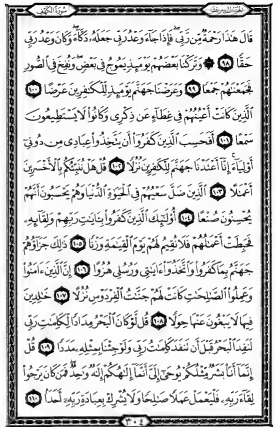 سورة الكهف
الجزء السادس عشر
قَالَ هَٰذَا رَحْمَةٌ مِّن رَّبِّي فَإِذَا جَآءَ وَعْدُ رَبِّي جَعَلَهُۥ دَكَّآءَ وَكَانَ وَعْدُ رَبِّي
حَقًّا ٩٨ وَتَرَكْنَا بَعْضَهُمْ يَوْمَئِذٍ يَمُوجُ فِي بَعْضٍ وَنُفِخَ فِي ٱلصُّورِ
فَجَمَعْنَٰهُمْ جَمْعًا ٩٩ وَعَرَضْنَا جَهَنَّمَ يَوْمَئِذٍ لِّلْكَٰفِرِينَ عَرْضًا ١٠٠
ٱلَّذِينَ كَانَتْ أَعْيُنُهُمْ فِي غِطَآءٍ عَن ذِكْرِي وَكَانُوا۟ لَا يَسْتَطِيعُونَ
سَمْعًا ١٠١ أَفَحَسِبَ ٱلَّذِينَ كَفَرُوٓا۟ أَن يَتَّخِذُوا۟ عِبَادِي مِن دُونِيٓ
أَوْلِيَآءَ إِنَّآ أَعْتَدْنَا جَهَنَّمَ لِلْكَٰفِرِينَ نُزُلًا ١٠٢ قُلْ هَلْ نُنَبِّئُكُم بِٱلْأَخْسَرِينَ
أَعْمَٰلًا ١٠٣ ٱلَّذِينَ ضَلَّ سَعْيُهُمْ فِي ٱلْحَيَوٰةِ ٱلدُّنْيَا وَهُمْ يَحْسَبُونَ أَنَّهُمْ
يُحْسِنُونَ صُنْعًا ١٠٤ أُو۟لَٰٓئِكَ ٱلَّذِينَ كَفَرُوا۟ بِـَٔايَٰتِ رَبِّهِمْ وَلِقَآئِهِۦ
فَحَبِطَتْ أَعْمَٰلُهُمْ فَلَا نُقِيمُ لَهُمْ يَوْمَ ٱلْقِيَٰمَةِ وَزْنًا ١٠٥ ذَٰلِكَ جَزَآؤُهُمْ
جَهَنَّمُ بِمَا كَفَرُوا۟ وَٱتَّخَذُوٓا۟ ءَايَٰتِي وَرُسُلِي هُزُوًا ١٠٦ إِنَّ ٱلَّذِينَ ءَامَنُوا۟
وَعَمِلُوا۟ ٱلصَّٰلِحَٰتِ كَانَتْ لَهُمْ جَنَّٰتُ ٱلْفِرْدَوْسِ نُزُلًا ١٠٧ خَٰلِدِينَ
فِيهَا لَا يَبْغُونَ عَنْهَا حِوَلًا ١٠٨ قُل لَّوْ كَانَ ٱلْبَحْرُ مِدَادًا لِّكَلِمَٰتِ رَبِّي
لَنَفِدَ ٱلْبَحْرُ قَبْلَ أَن تَنفَدَ كَلِمَٰتُ رَبِّي وَلَوْ جِئْنَا بِمِثْلِهِۦ مَدَدًا ١٠٩ قُلْ
إِنَّمَآ أَنَا۠ بَشَرٌ مِّثْلُكُمْ يُوحَىٰٓ إِلَيَّ أَنَّمَآ إِلَٰهُكُمْ إِلَٰهٌ وَٰحِدٌ فَمَن كَانَ يَرْجُوا۟
لِقَآءَ رَبِّهِۦ فَلْيَعْمَلْ عَمَلًا صَٰلِحًا وَلَا يُشْرِكْ بِعِبَادَةِ رَبِّهِۦٓ أَحَدًۢا ١١٠
٣٠٤